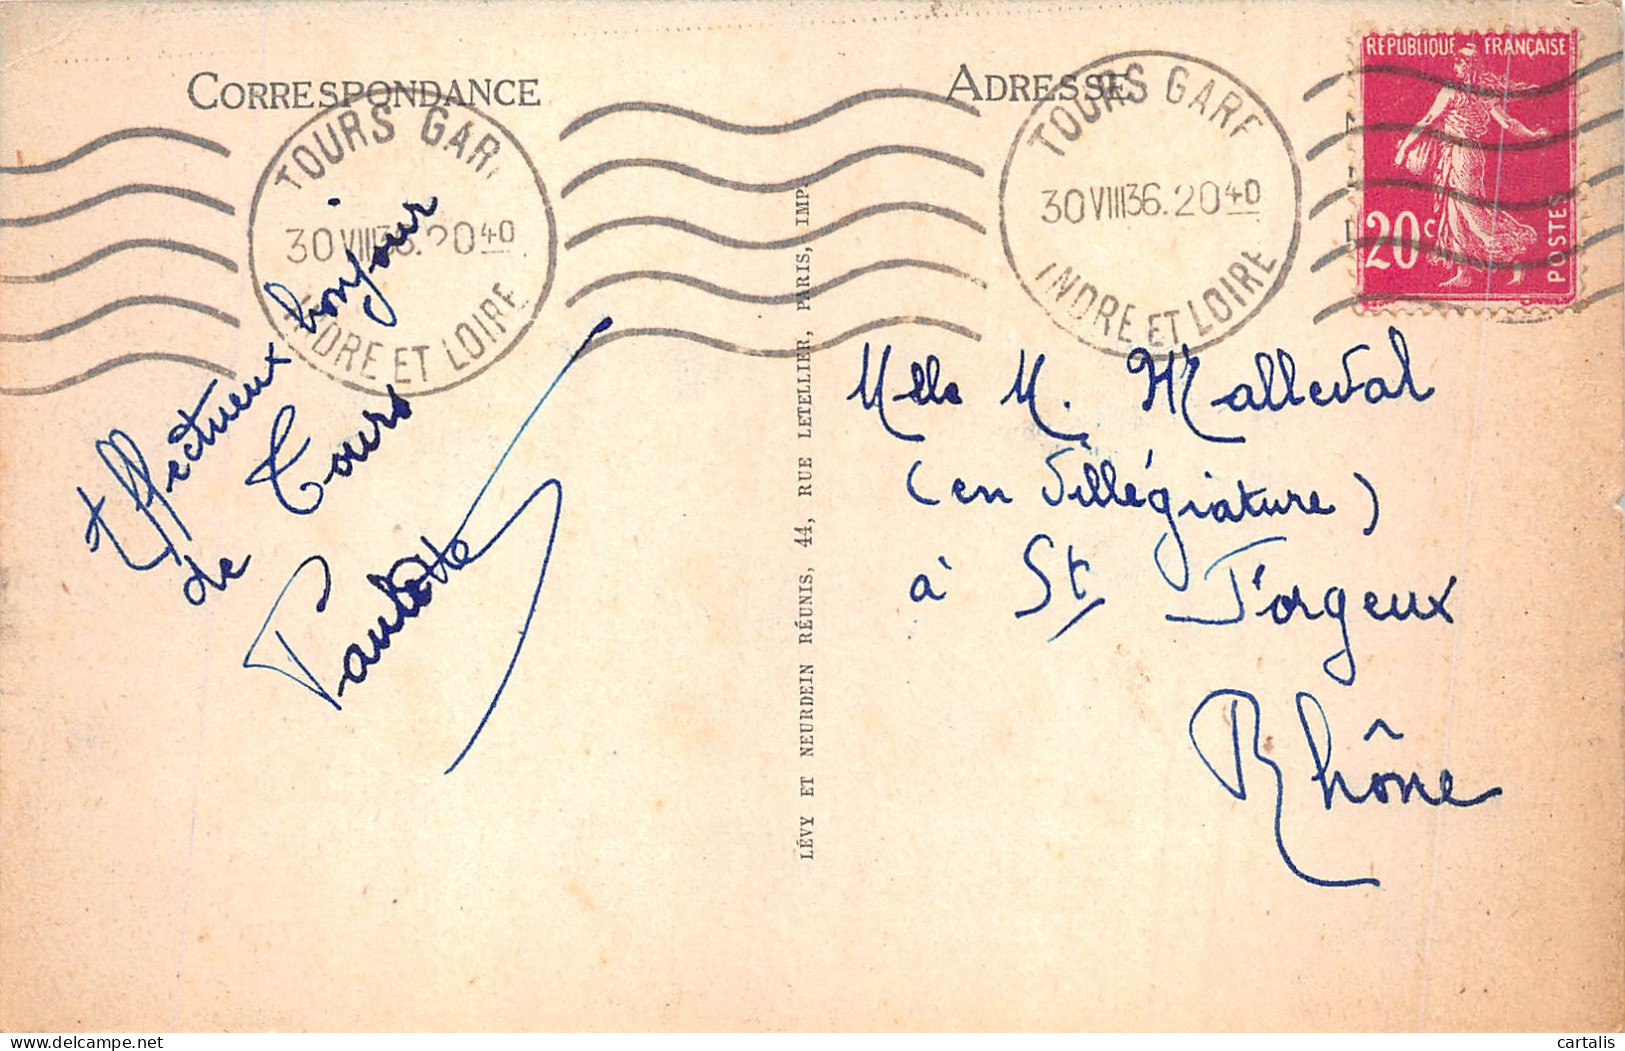 CORRESPONDANCE
TOURS GAR
30 VIII 36. 20 40
INDRE ET LOIRE
Effectueux bonjour
de Tours
Paulette
LÉVY ET NEURDEIN RÉUNIS, 44, RUE LETELLIER, PARIS, IMP.
ADRESSE
TOURS GARE
30 VIII 36. 20 40
INDRE ET LOIRE
REPUBLIQUE FRANÇAISE
20c
POSTES
Melle M. Malleval
(en villégiature)
à St Forgeux
Rhône
cartalis